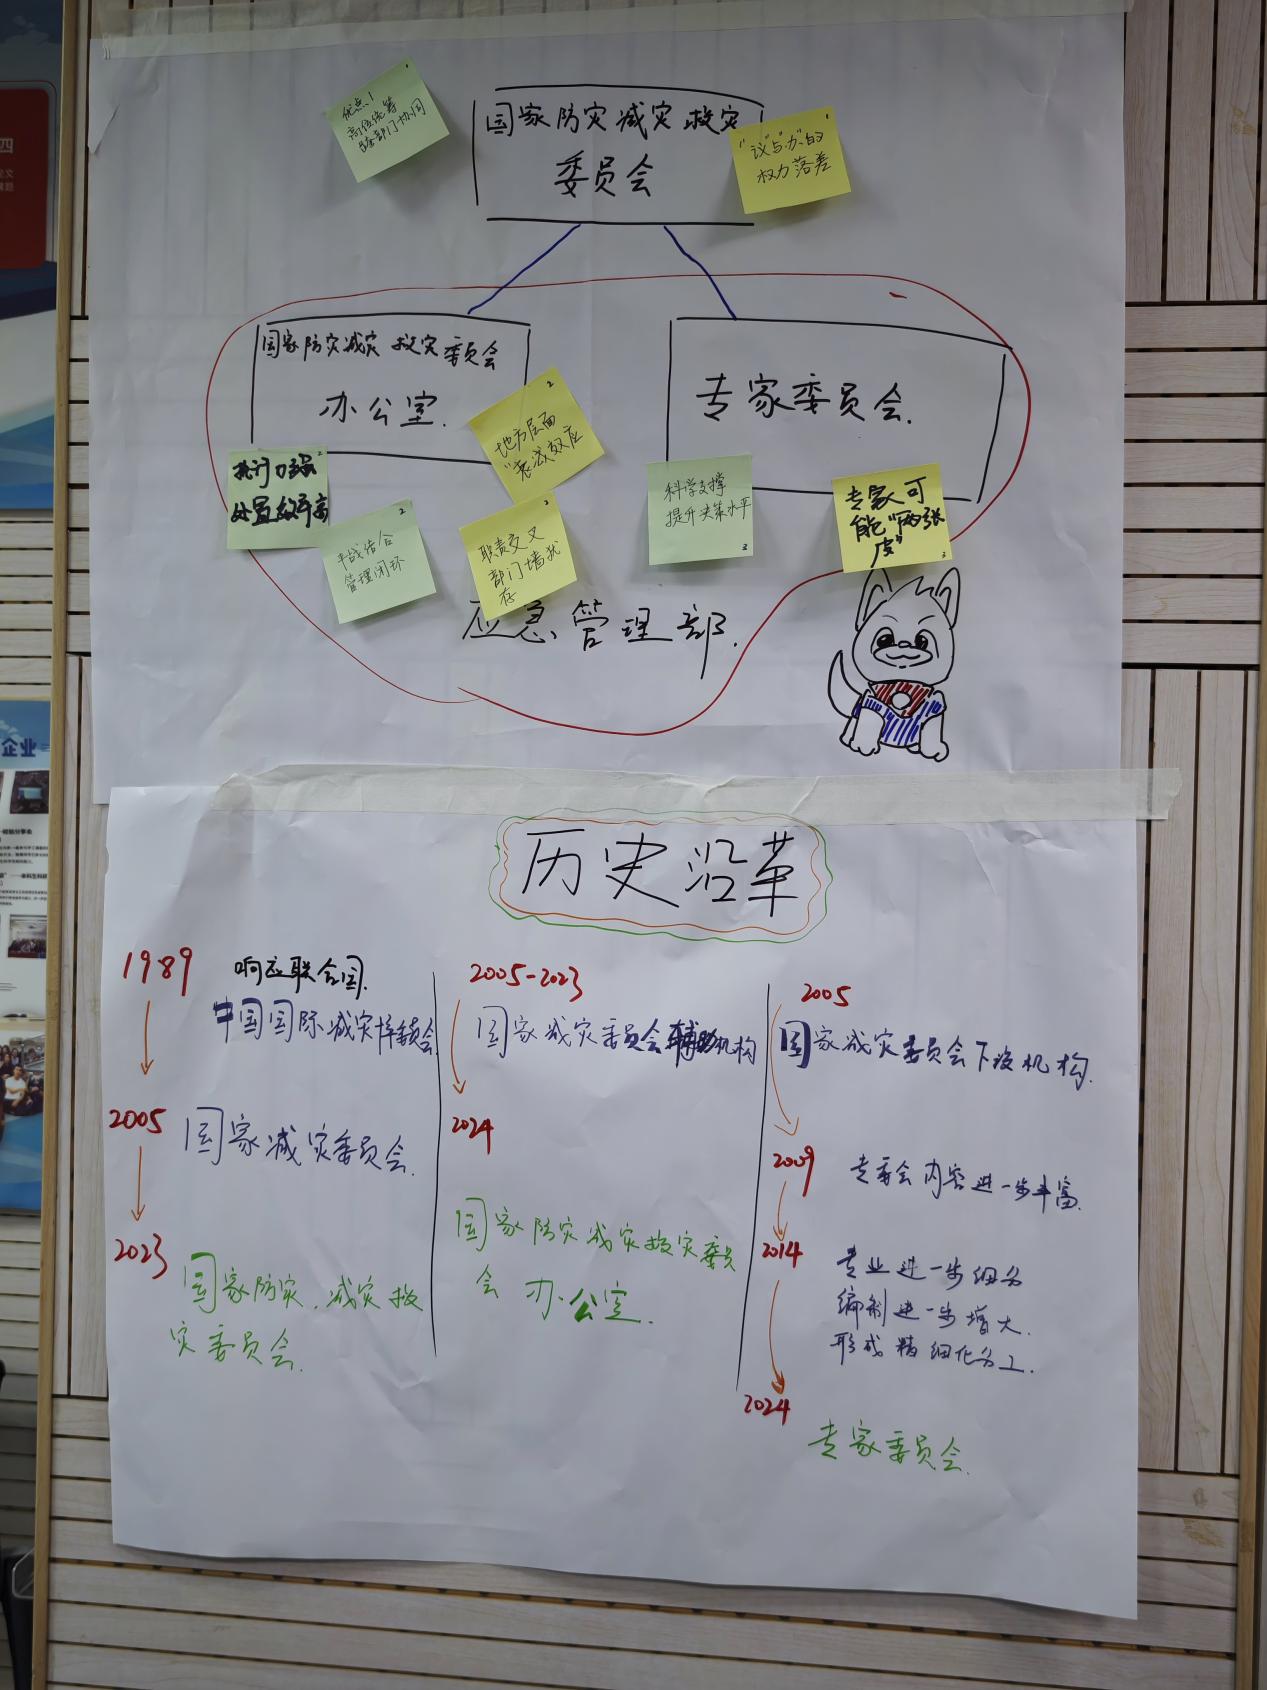 优点！
高位统筹
跨部门协同
国家防灾减灾救灾
委员会
"议"与"办"的
权力落差
国家防灾减灾救灾委员会
办公室.
地方层面
"衰减效应
处置效率高
平战结合
管理闭环
职责交叉
部门墙犹
存
专家委员会.
科学支撑
提升决策水平
专家可
能"两张
皮"
应急管理部.
企业
历史沿革
1989
响应联合国
中国国际减灾
2005
国家减灾委员会.
2023
国家防灾.减灾救
灾委员会.
2005-2023
国家减灾委员会辅助机构
2024
国家防灾减灾救灾委员
会 办公室.
2005
国家减灾委员会下设机构.
2009
专委会内容进一步丰富.
2014
专业进一步细分
编制进一步增大.
形成精细化分工.
2024
专家委员会.